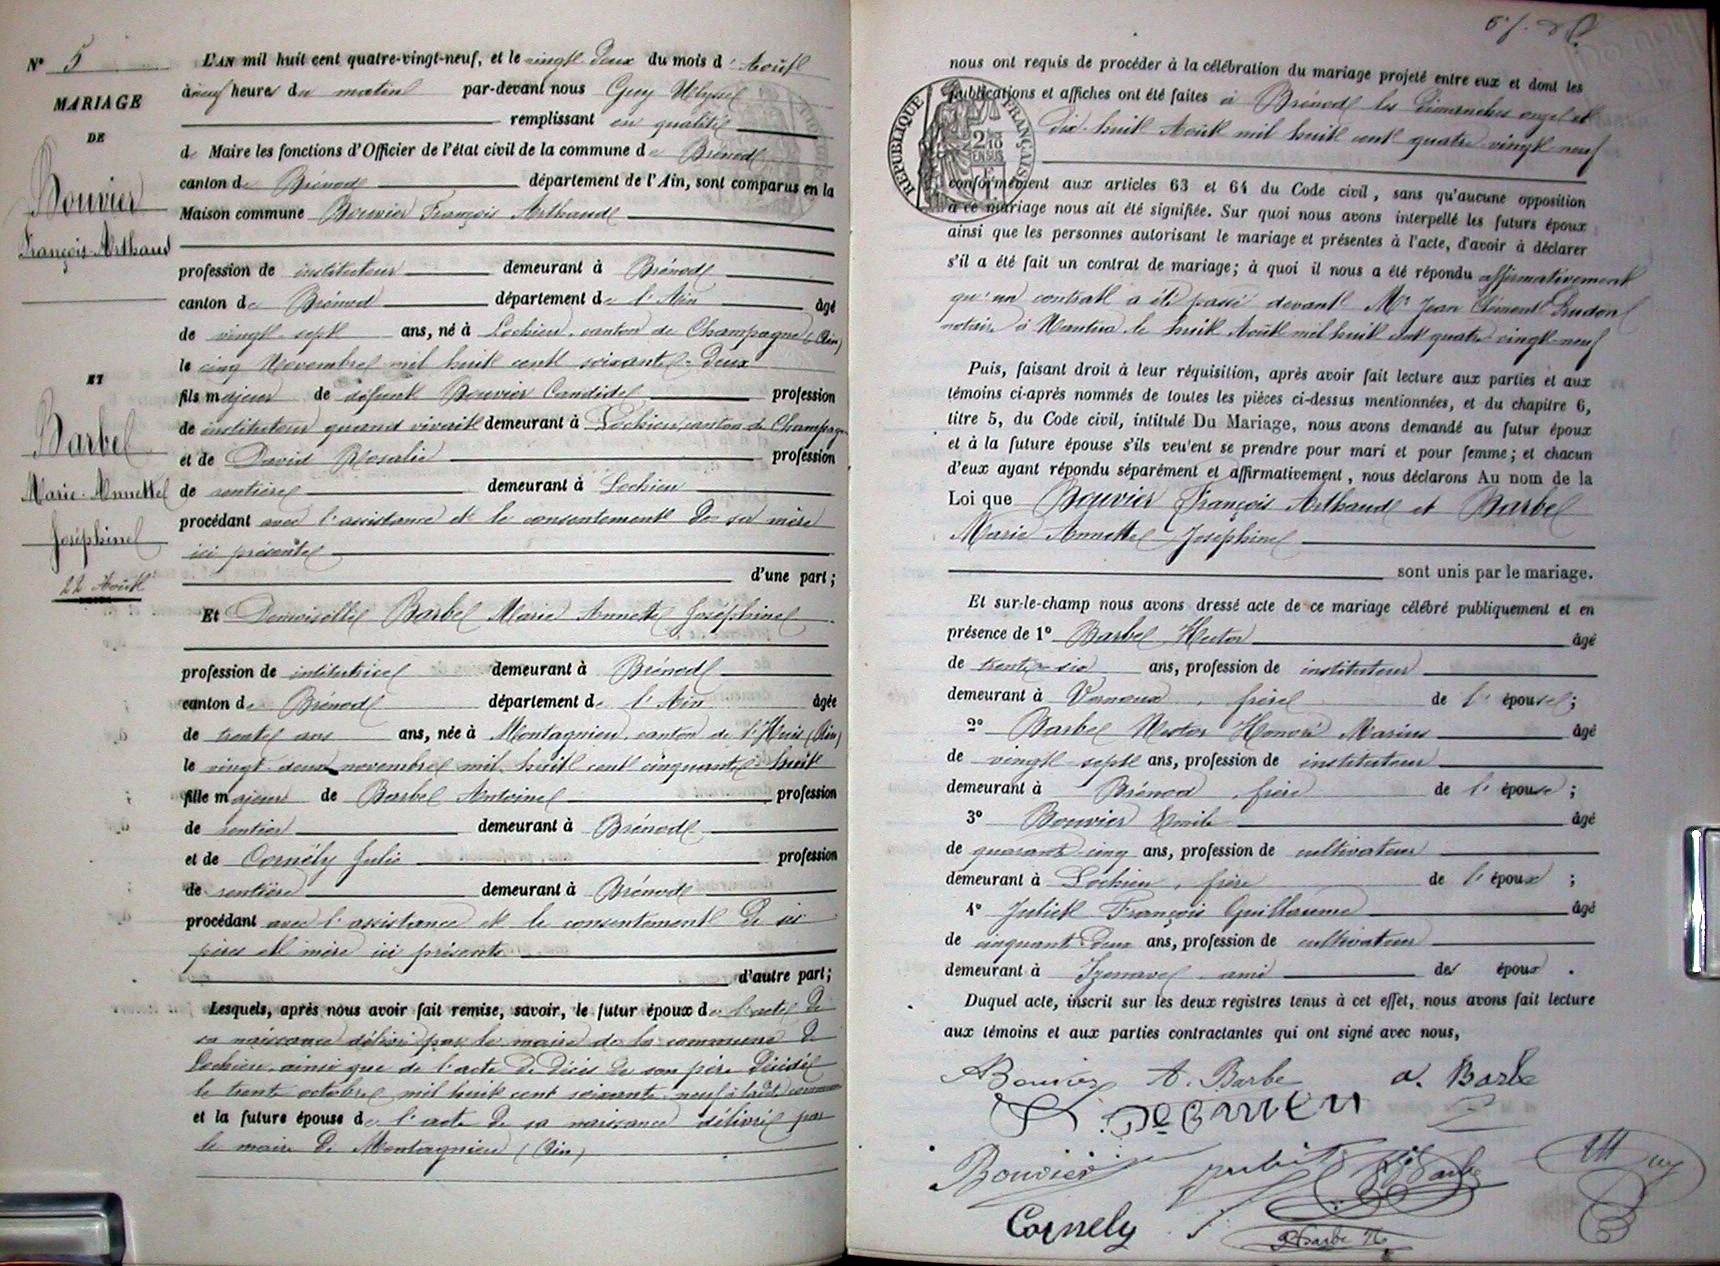 N° 5
MARIAGE
DE
Bouvier
François-Arthaud
ET
Barbe
Marie-Annette
Joséphine
22 Août
L'AN mil huit cent quatre-vingt-neuf, et le vingt deux du mois d'Août
à neuf heures du matin par-devant nous Guy Ulysse
remplissant en qualité
de Maire les fonctions d'Officier de l'état civil de la commune de Brénod
canton de Brénod département de l'Ain, sont comparus en la
Maison commune Bouvier François Arthaud
profession de instituteur demeurant à Brénod
canton de Brénod département de l'Ain âgé
de vingt-sept ans, né à Lochieu, canton de Champagne (Ain)
le cinq Novembre mil huit cent soixante-deux
fils majeur de défunt Bouvier Candide profession
de instituteur quand vivait demeurant à Lochieu, canton de Champagne
et de David Rosalie profession
de rentière demeurant à Lochieu
procédant avec l'assistance et le consentement de sa mère
ici présente
d'une part;
Et Demoiselle Barbe Marie Annette Joséphine
profession de institutrice demeurant à Brénod
canton de Brénod département de l'Ain âgée
de trente ans ans, née à Montagnieu, canton de l'Huis (Ain)
le vingt deux novembre mil huit cent cinquante-huit
fille majeure de Barbe Antoine profession
de rentier demeurant à Brénod
et de Cornély Julie profession
de rentière demeurant à Brénod
procédant avec l'assistance et le consentement de ses
père et mère ici présents
d'autre part;
Lesquels, après nous avoir fait remise, savoir, le futur époux de l'acte de
sa naissance délivré par le maire de la commune de
Lochieu, ainsi que de l'acte de décès de son père décédé
le trente octobre mil huit cent soixante-neuf à ladite commune
et la future épouse de l'acte de sa naissance délivré par
le maire de Montagnieu (Ain)
nous ont requis de procéder à la célébration du mariage projeté entre eux et dont les
publications et affiches ont été faites à Brénod les dimanches onze et
dix-huit Août mil huit cent quatre vingt neuf
RÉPUBLIQUE FRANÇAISE
conformément aux articles 63 et 64 du Code civil, sans qu'aucune opposition
à ce mariage nous ait été signifiée. Sur quoi nous avons interpellé les futurs époux
ainsi que les personnes autorisant le mariage et présentes à l'acte, d'avoir à déclarer
s'il a été fait un contrat de mariage; à quoi il nous a été répondu affirmativement
qu'un contrat a été passé devant Me Jean Clément
notaire à Nantua le huit Août mil huit cent quatre vingt-neuf
Puis, faisant droit à leur réquisition, après avoir fait lecture aux parties et aux
témoins ci-après nommés de toutes les pièces ci-dessus mentionnées, et du chapitre 6,
titre 5, du Code civil, intitulé Du Mariage, nous avons demandé au futur époux
et à la future épouse s'ils veulent se prendre pour mari et pour femme; et chacun
d'eux ayant répondu séparément et affirmativement, nous déclarons Au nom de la
Loi que Bouvier François Arthaud et Barbe
Marie Annette Joséphine
sont unis par le mariage.
Et sur-le-champ nous avons dressé acte de ce mariage célébré publiquement et en
présence de 1° Barbe Hector âgé
de trente-six ans, profession de instituteur
demeurant à Vernoux, frère de l'épouse;
2° Barbe Nestor Honoré Marius âgé
de vingt-sept ans, profession de instituteur
demeurant à Brénod, frère de l'épouse;
3° Bouvier Emile âgé
de quarante-cinq ans, profession de cultivateur
demeurant à Lochieu, frère de l'époux;
4° Juliet François Guillaume âgé
de cinquante-deux ans, profession de cultivateur
demeurant à Izenave, ami des époux.
Duquel acte, inscrit sur les deux registres tenus à cet effet, nous avons fait lecture
aux témoins et aux parties contractantes qui ont signé avec nous,
ABouvier A. Barbe a. Barbe
Bouvier Juliet Barbe U Guy
Cornely Barbe N.